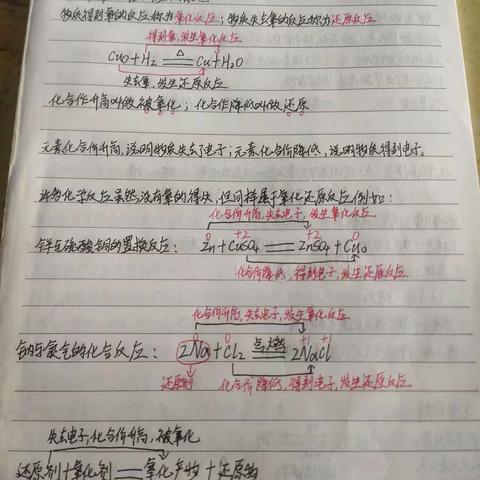 物质得到氧的反应称为氧化反应；物质失去氧的反应称为还原反应
得到氧，发生氧化反应
CuO+H₂ ≜ Cu+H₂O
失去氧，发生还原反应
化合价升高叫做被氧化；化合价降低叫做还原
元素化合价升高，说明物质失去了电子；元素化合价降低，说明物质得到电子。
许多化学反应虽然没有氧的得失，但同样属于氧化还原反应例如：
化合价升高，失去电子，发生氧化反应
0 +2 +2 0
锌与硫酸铜的置换反应： Zn+CuSO₄ = ZnSO₄+Cu
化合价降低，得到电子，发生还原反应
化合价升高，失去电子，发生氧化反应
钠与氯气的化合反应： 2Na+Cl₂ 点燃 2NaCl
还原剂 化合价降低，得到电子，发生还原反应
失去电子，化合价升高，被氧化
还原剂+氧化剂=氧化产物+还原物